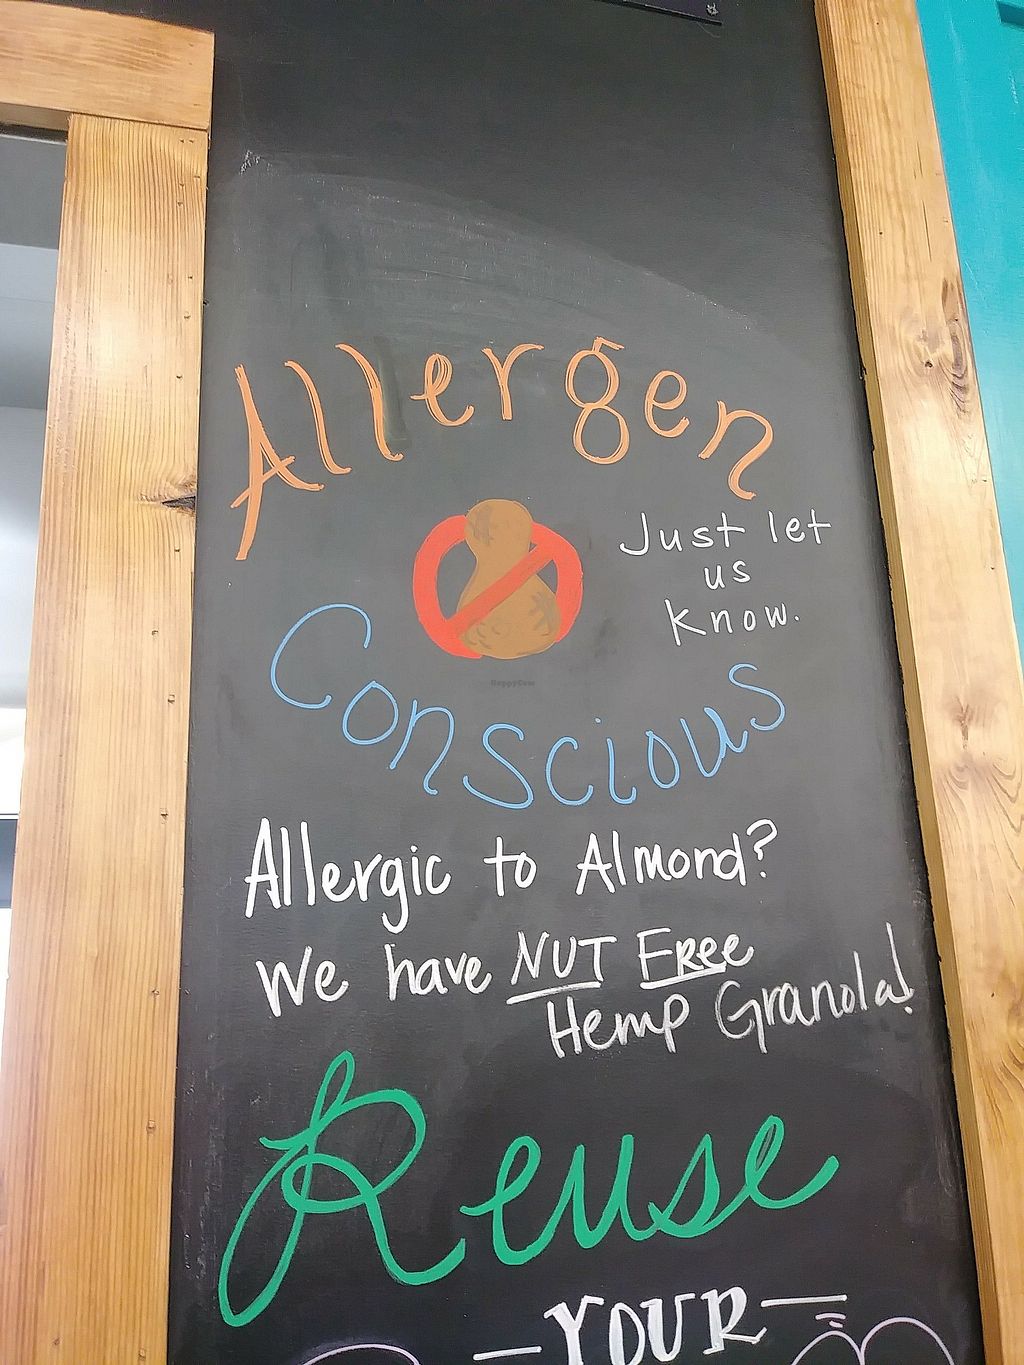 Allergen
Just let
us
know.
Conscious
Allergic to Almond?
We have NUT FREE
Hemp Granola!
Reuse
-YOUR-
HappyCow